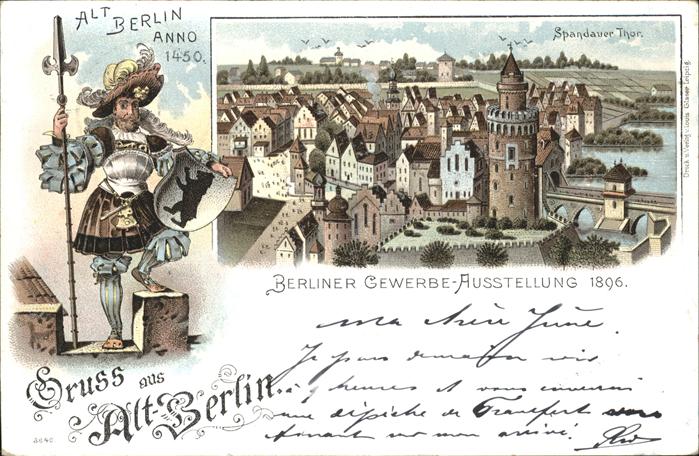 ALT
BERLIN
ANNO
1450.
Spandauer Thor.
Druck u. Verlag v. Louis Glaser Leipzig.
BERLINER GEWERBE-AUSSTELLUNG 1896.
Gruss aus
Alt-Berlin
3640
ma chère June.
Je pars demain
à 9 heures et vous
une dépêche de Francfort
mon arrivé.